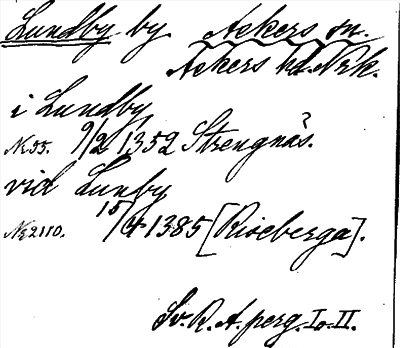 Lundby by Ackers sn.
Ackers hd. Nrk.
i Lundby
№ 55. 9/2 1352 Strengnäs.?
vid Lunby
№ 2110. 15/4 1385 [Riseberga].
Sv. R. A. perg. I o. II.